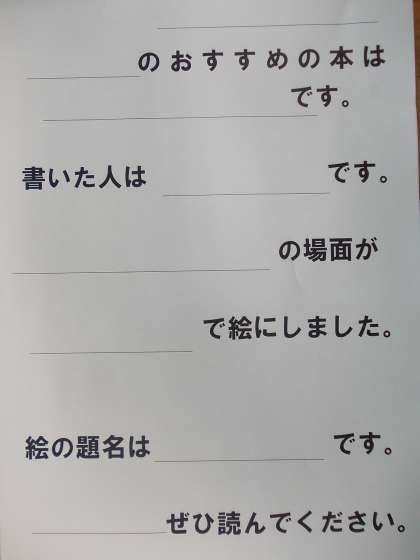 のおすすめの本は
です。
書いた人は です。
の場面が
で絵にしました。
絵の題名は です。
ぜひ読んでください。